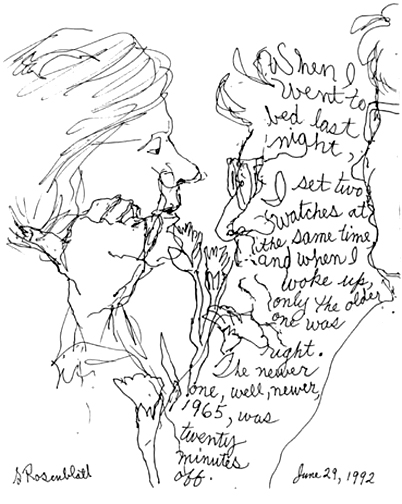 When I
went to
bed last
night,
I set two
watches at
the same time
and when I
woke up,
only the older
one was
right.
The newer
one, well, newer,
1965, was
twenty
minutes
off.
S Rosenblatt
June 29, 1992